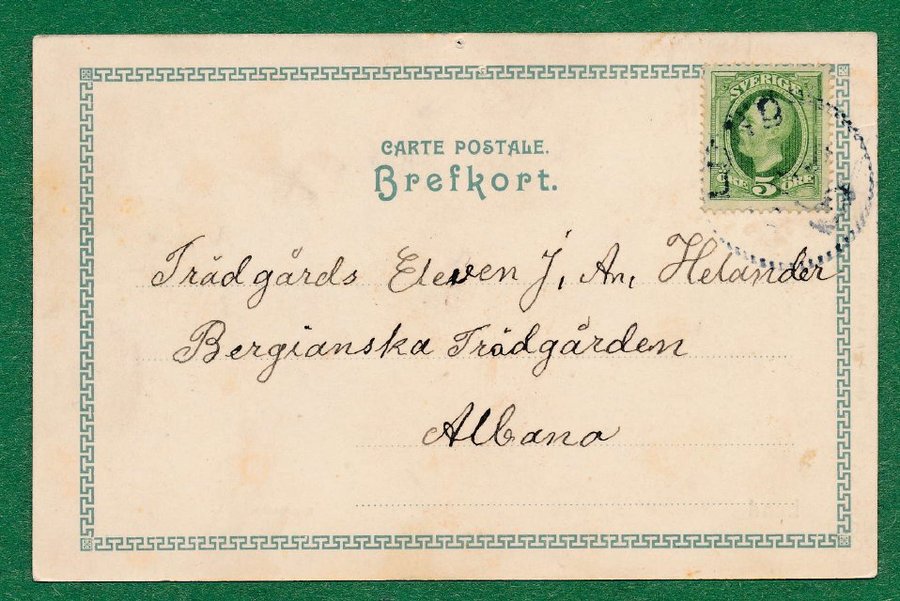 SVERIGE
5
ÖRE ÖRE
CARTE POSTALE.
Brefkort.
Trädgårds Eleven J, An, Helander
Bergianska Trädgården
Albano